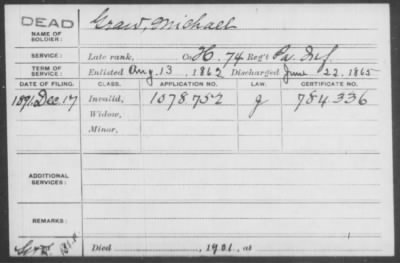 DEAD
NAME OF SOLDIER:
Graw, Michael
SERVICE:
Late rank, Co. H. 74 Reg't Pa. Inf.
TERM OF SERVICE:
Enlisted Aug. 13, 1862 Discharged June 22, 1865
DATE OF FILING. CLASS. APPLICATION NO. LAW. CERTIFICATE NO.
1891, Dec. 17 Invalid, 1078.752 g 784.336
Widow,
Minor,
ADDITIONAL SERVICES:
REMARKS:
Died , 1901, at